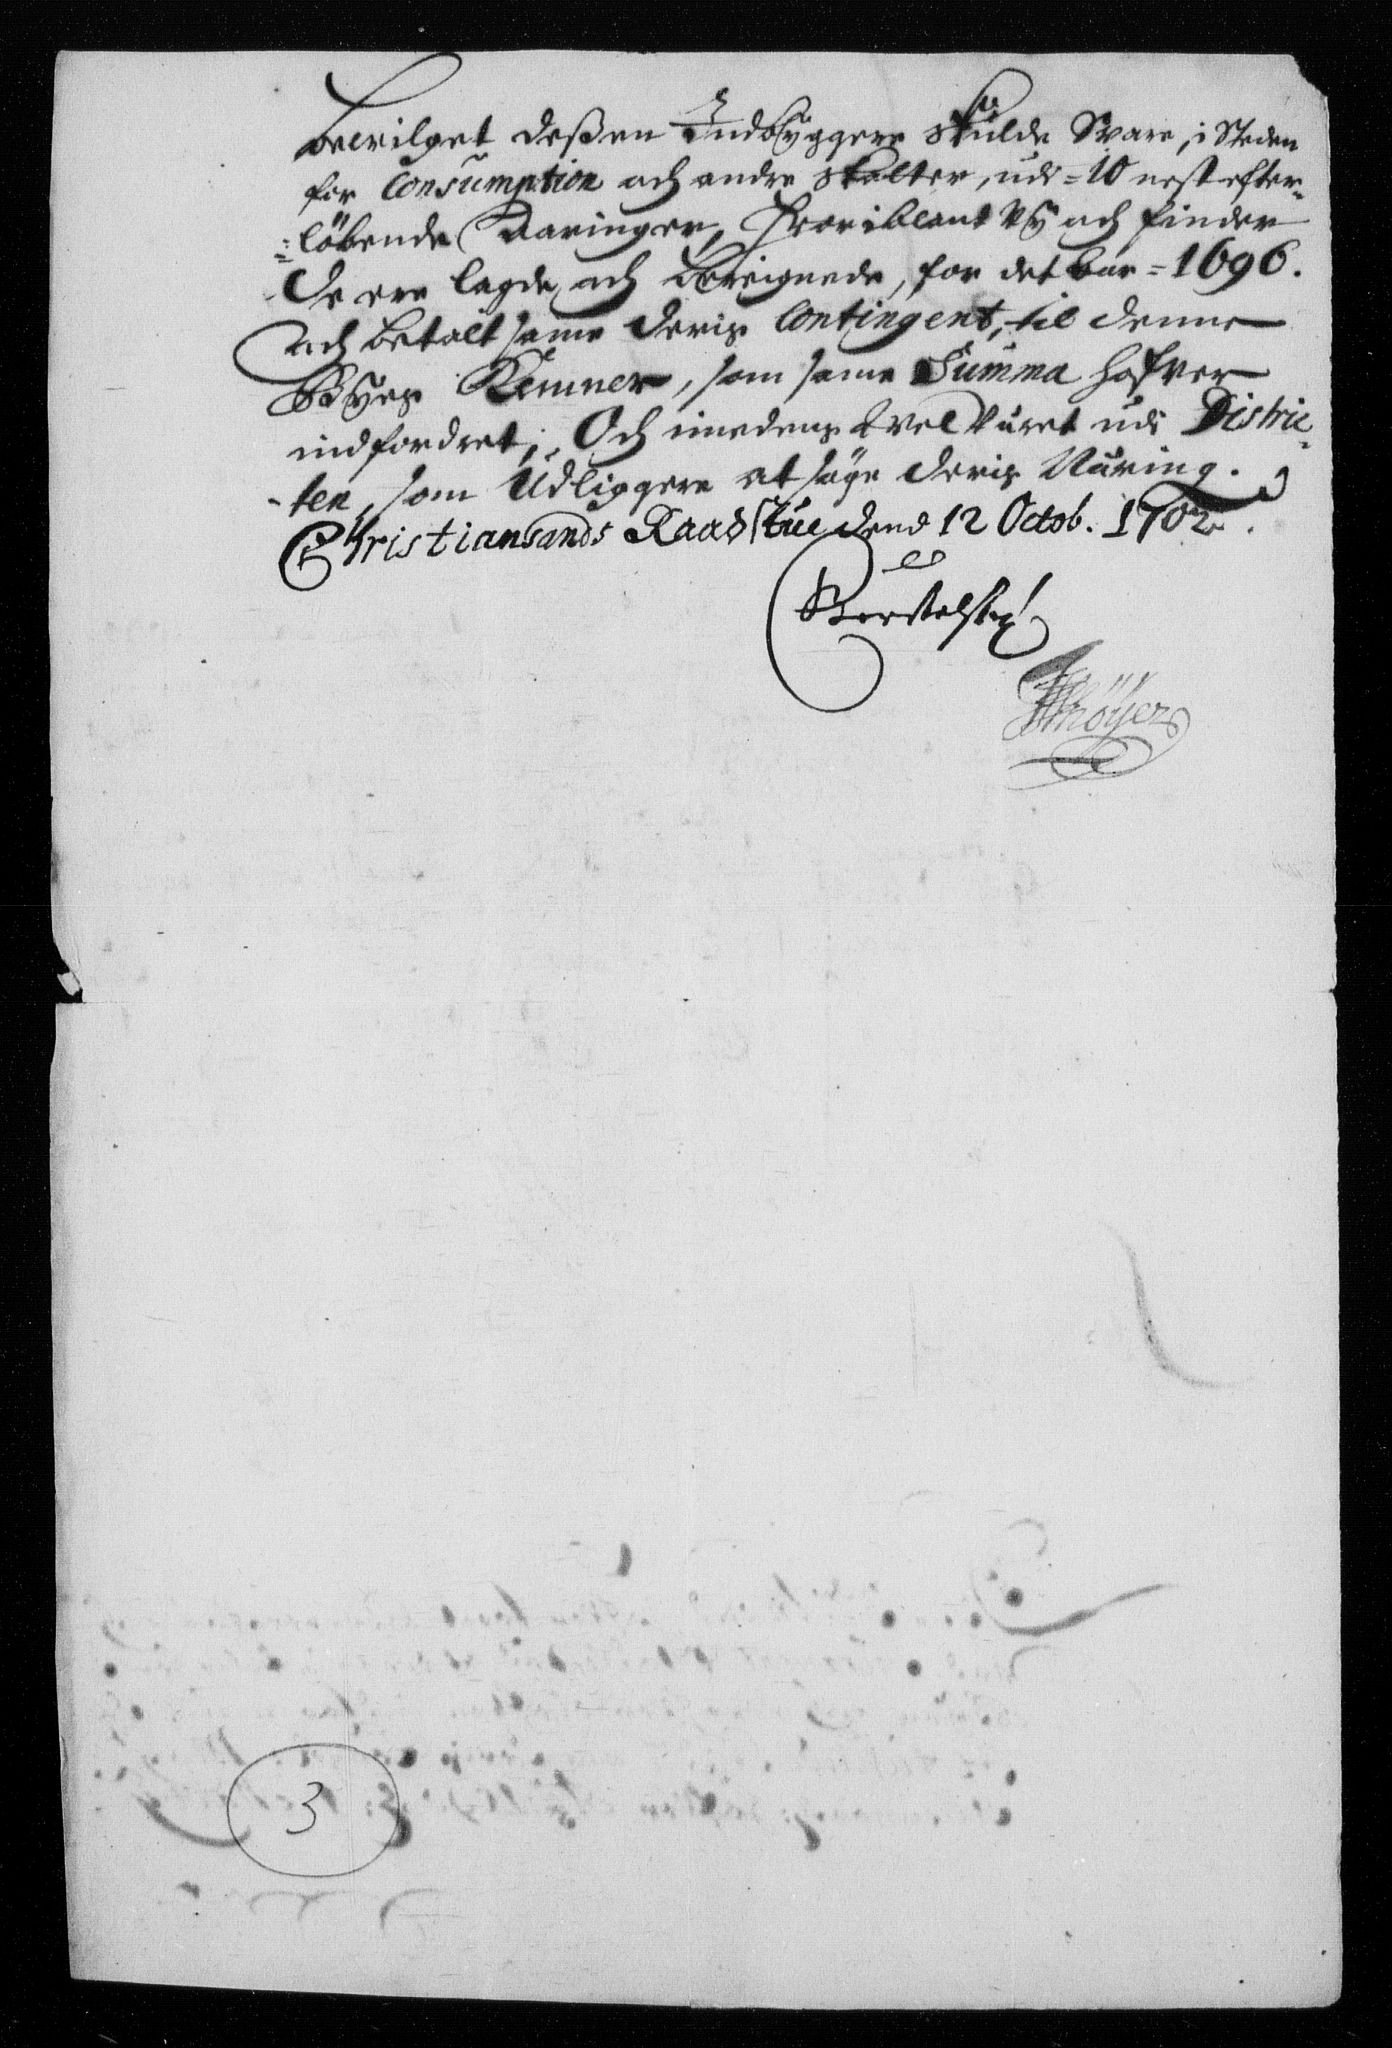 bevilget deßen Indbÿggere skulde Svare, i Steden
for Consumption och andre skatter, udi = 10 nest efter-
=löbende Aaringer, hvoriblant vj och finder
De ere lagde och bereignede, for det Aar = 1696.
och betalt same deris Contingent, til denne
Byes Kemner, som same Summa hafver
indfordret; Och imedens vel været udi Distric-
-ten, som Udliggere at söge deris Næring.
Christiansands Raadstue dend 12 Octob. 1702.
Höÿer
3